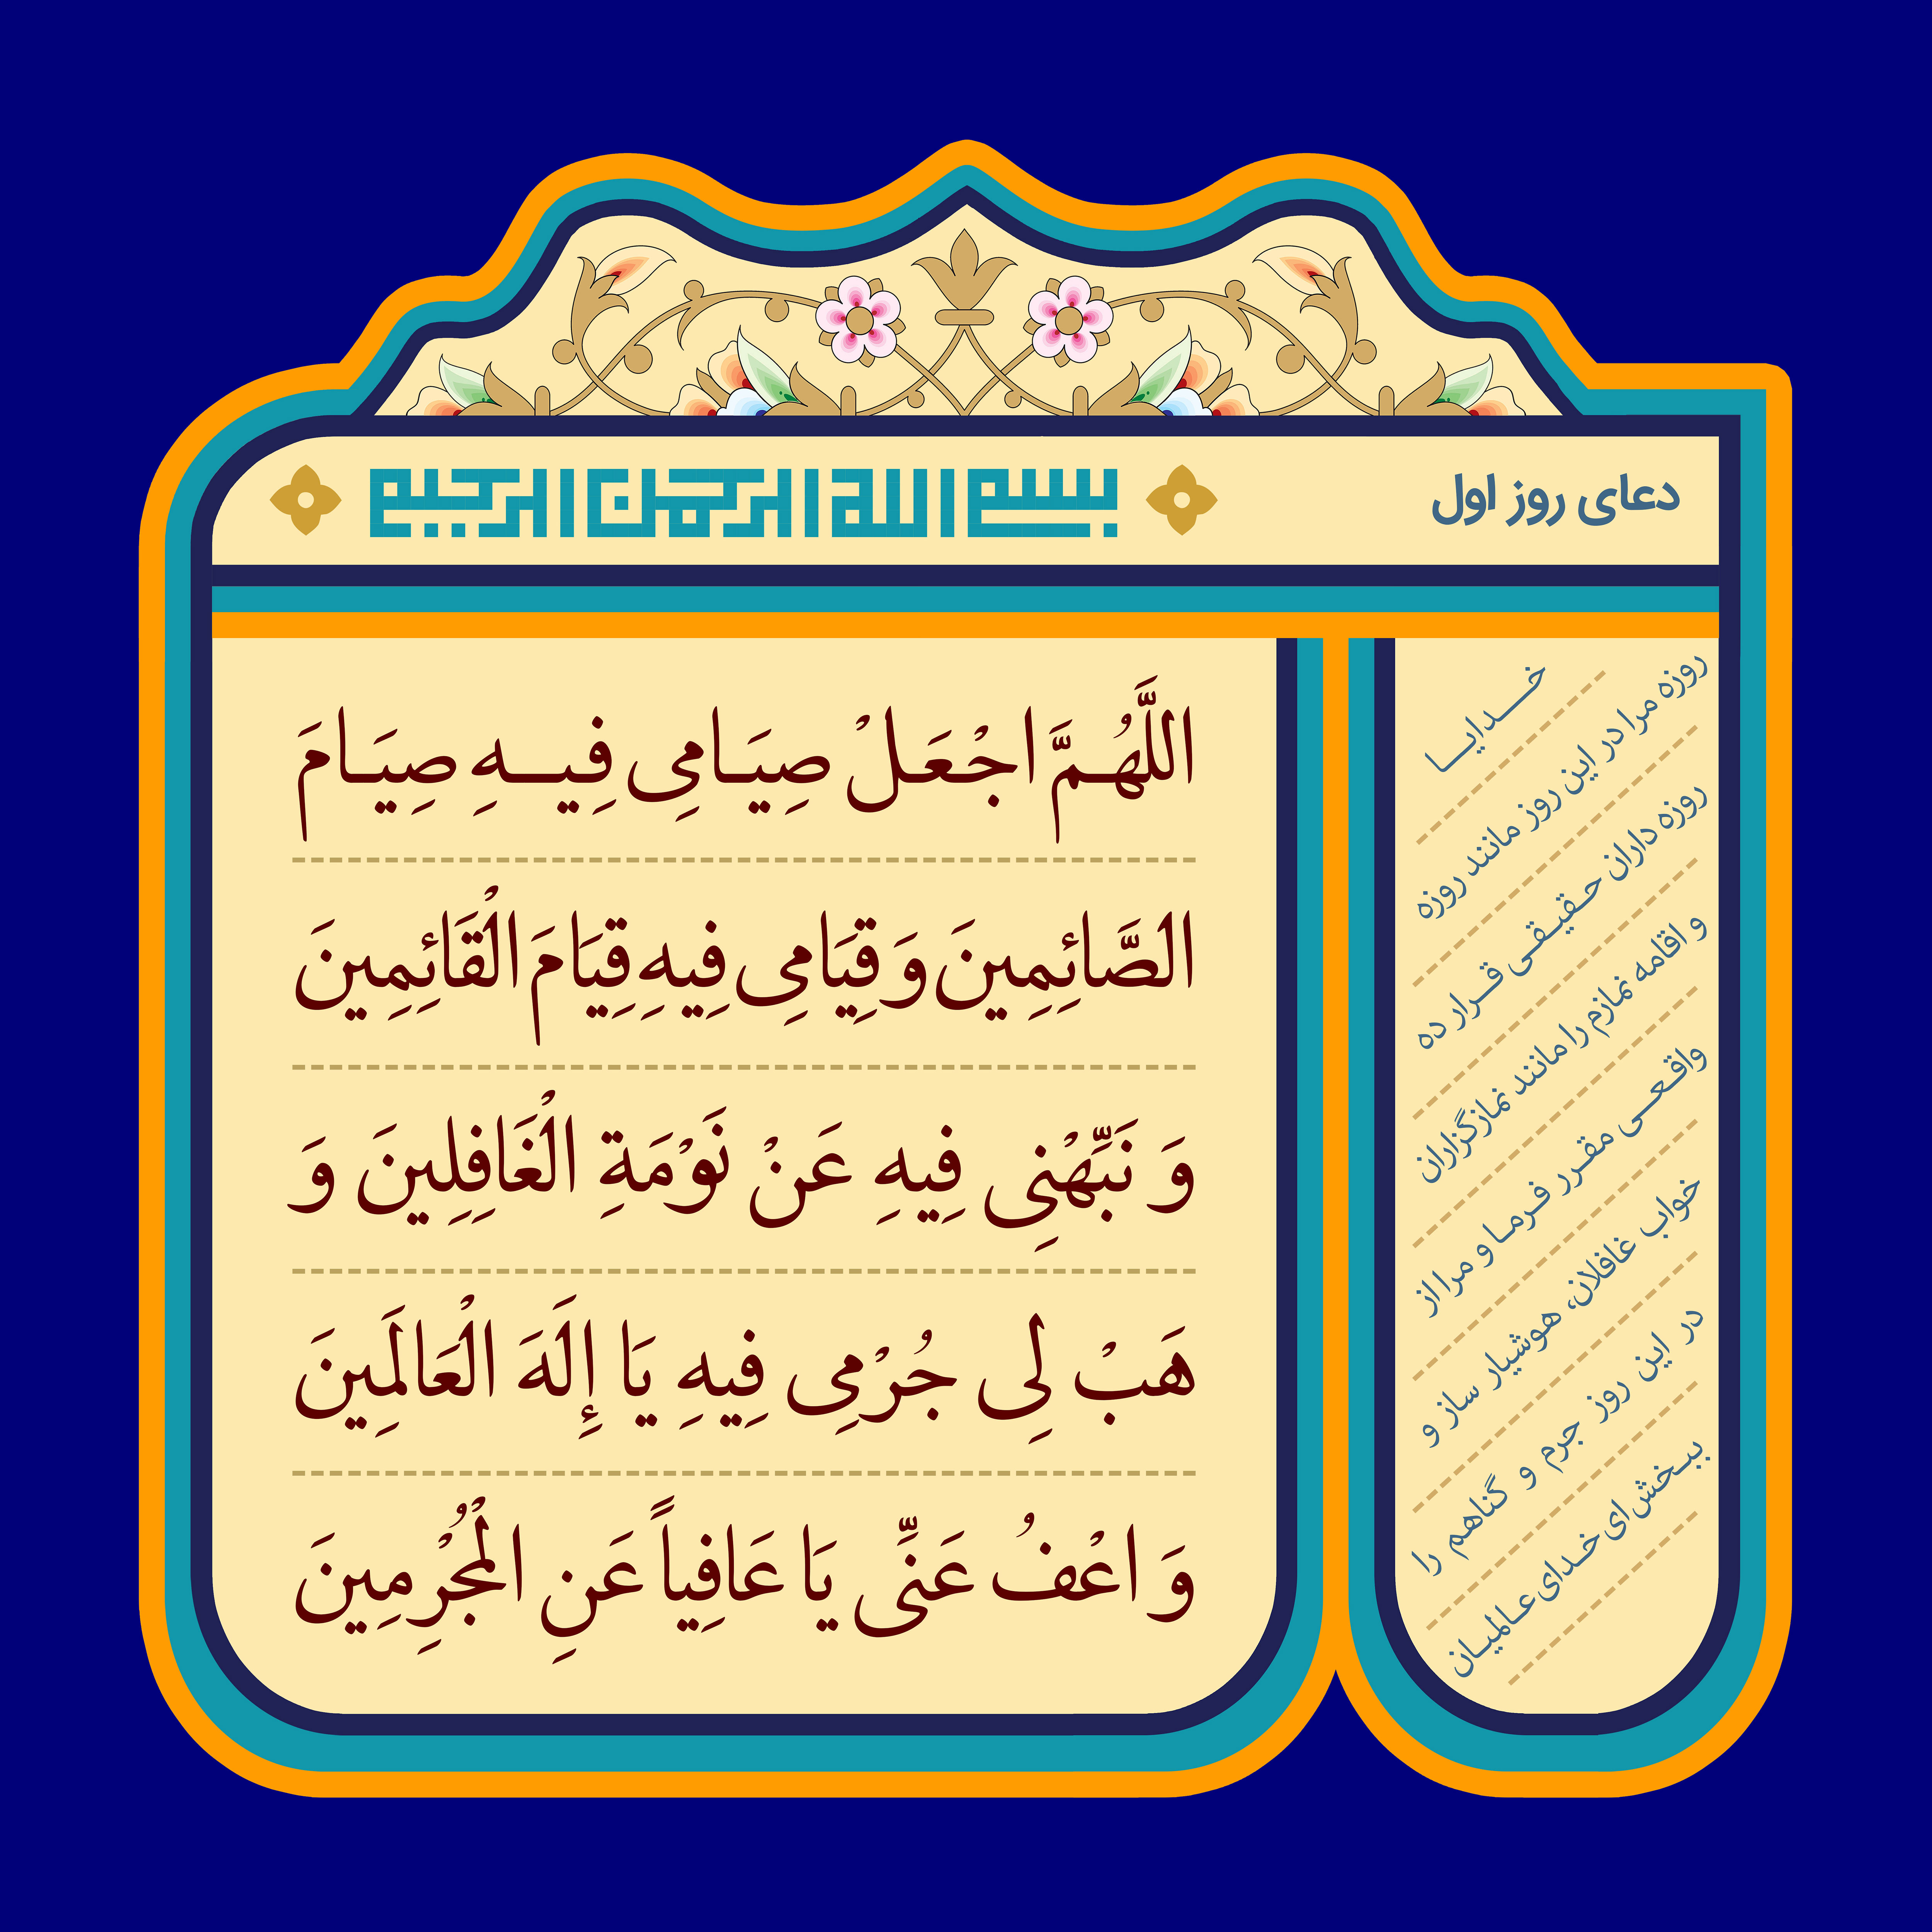 دعای روز اول
بسم الله الرحمن الرحیم
اللَّهُمَّ اجْعَلْ صِيَامِی فِيهِ صِيَامَ
الصَّائِمِينَ وَ قِيَامِی فِيهِ قِيَامَ الْقَائِمِينَ
وَ نَبِّهْنِی فِيهِ عَنْ نَوْمَةِ الْغَافِلِينَ وَ
هَبْ لِی جُرْمِی فِيهِ يَا إِلَهَ الْعَالَمِينَ
وَ اعْفُ عَنِّی يَا عَافِياً عَنِ الْمُجْرِمِينَ
خدایا
روزه مرا در این روز مانند روزه
روزه داران حقیقی قرار ده
و اقامه نمازم را مانند نمازگزاران
واقعی مقرر فرما و مرا از
خواب غافلان، هوشیار ساز و
در این روز جرم و گناهم را
ببخش ای خدای عالمیان